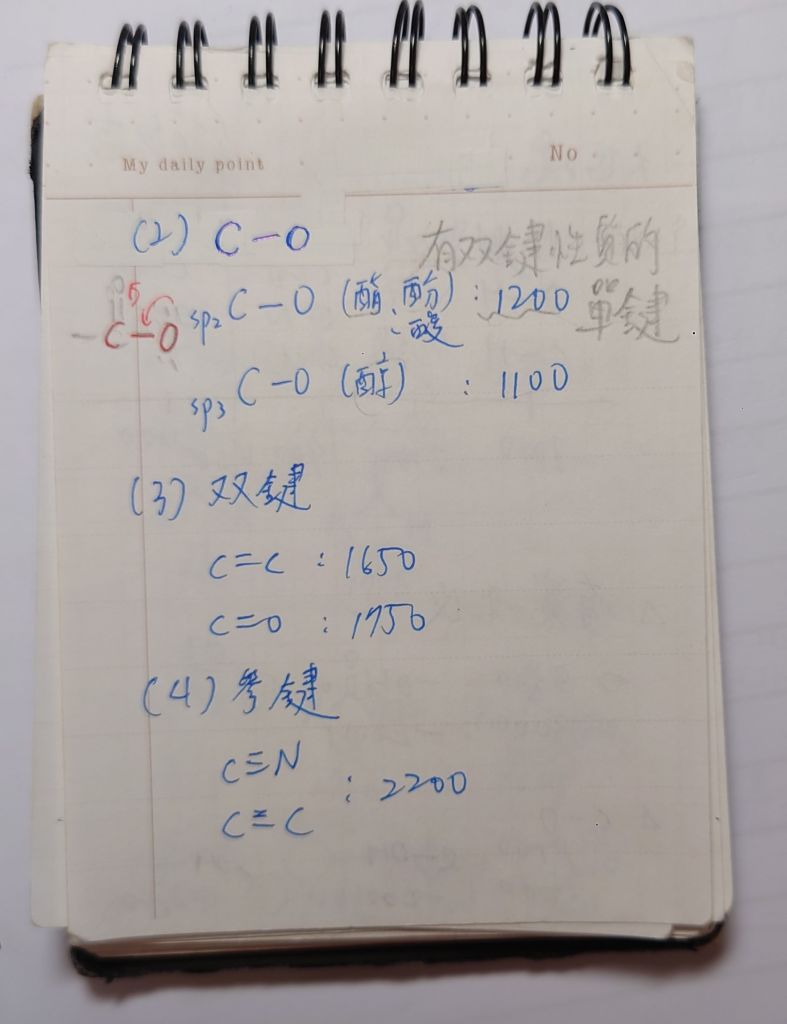 My daily point
No
(2) C-O
有双鍵性質的
單鍵
O
-C-O
sp2 C-O (酯、酚、酸) : 1200
sp3 C-O (醇) : 1100
(3) 双鍵
C=C : 1650
C=O : 1750
(4) 參鍵
C≡N
: 2200
C≡C